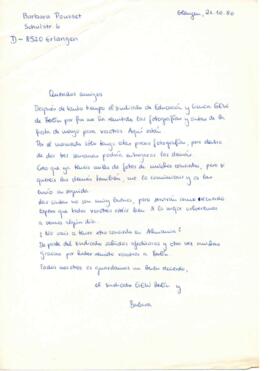 Barbara Rousset
Schulstr. 6
D-8520 Erlangen
Erlangen, 21.10.80
Queridos amigos
Después de tanto tiempo el sindicato de Educación y Ciencia GEW
de Berlín por fin me ha mandado las fotografías y cintas de la
fiesta de mayo para vosotros. Aquí están.
Por el momento sólo tengo estas pocas fotografías, pero dentro
de dos tres semanas podría entregaros las demás.
Creo que ya tenéis cintas de muchos conciertos, pero si
queréis las demás también, me lo comunicáis y os las
envío en seguida.
Las cintas no son muy buenas, pero servirán como recuerdo.
Espero que todos vosotros estéis bien. A lo mejor volveremos
a vernos algún día.
¿No vais a tener otro concierto en Alemania?
De parte del sindicato saludos afectuosos y otra vez muchas
gracias por haber venido vosotros a Berlín.
Todos nosotros os guardamos un buen recuerdo,
el sindicato GEW Berlín y
Barbara